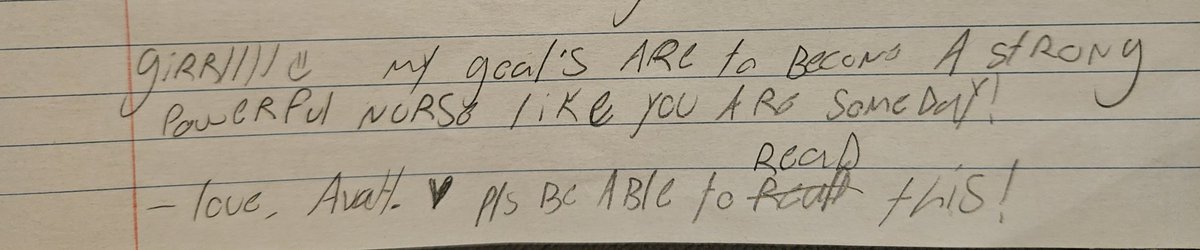 giRR///// ☺ My goal's ARE to Become A stRONg
PoweRful NURSE like you ARE someDay!
ReaD
- love, AvaH. ♥ pls BE ABle to this!